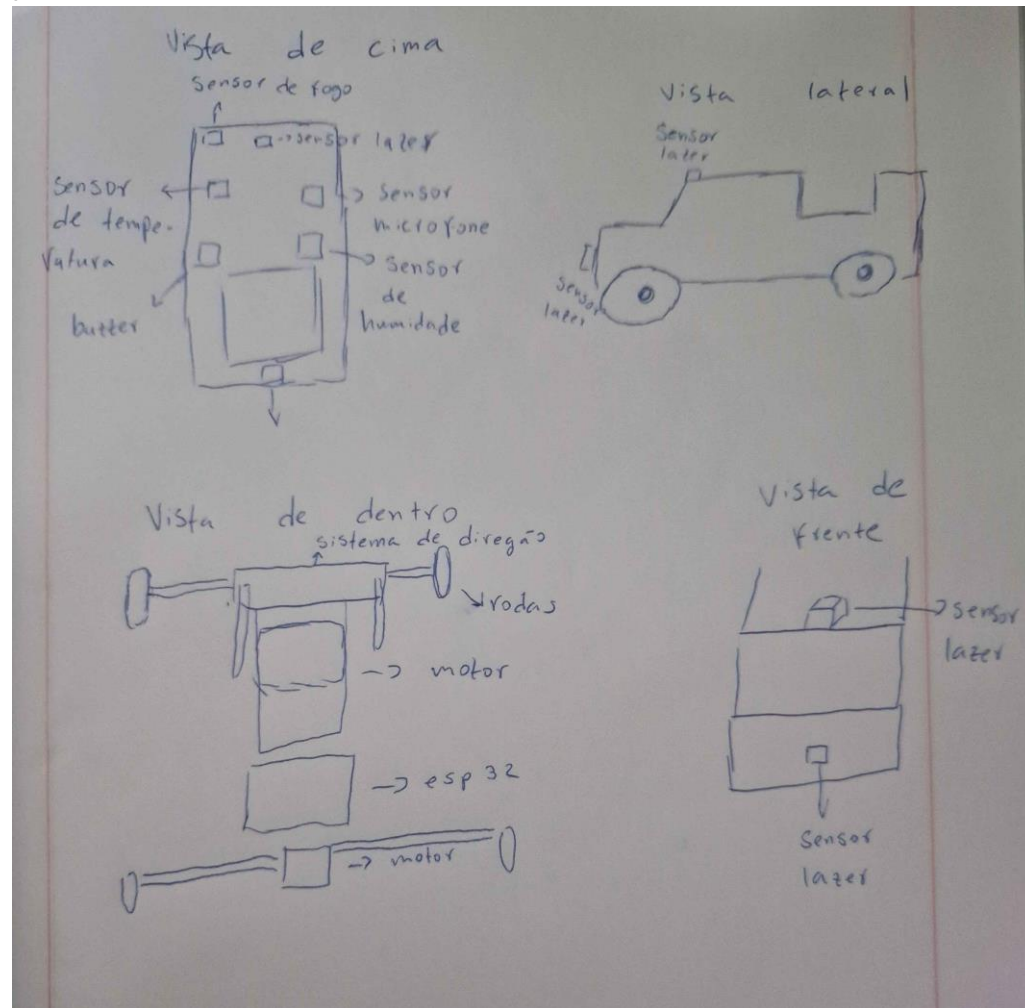 Vista de cima
Sensor de fogo
sensor lazer
Sensor
de tempe-
ratura
Sensor
microfone
Sensor
de
humidade
buzzer
Vista lateral
Sensor
lazer
Sensor
lazer
Vista de dentro
sistema de direção
rodas
motor
esp 32
motor
Vista de
frente
sensor
lazer
Sensor
lazer